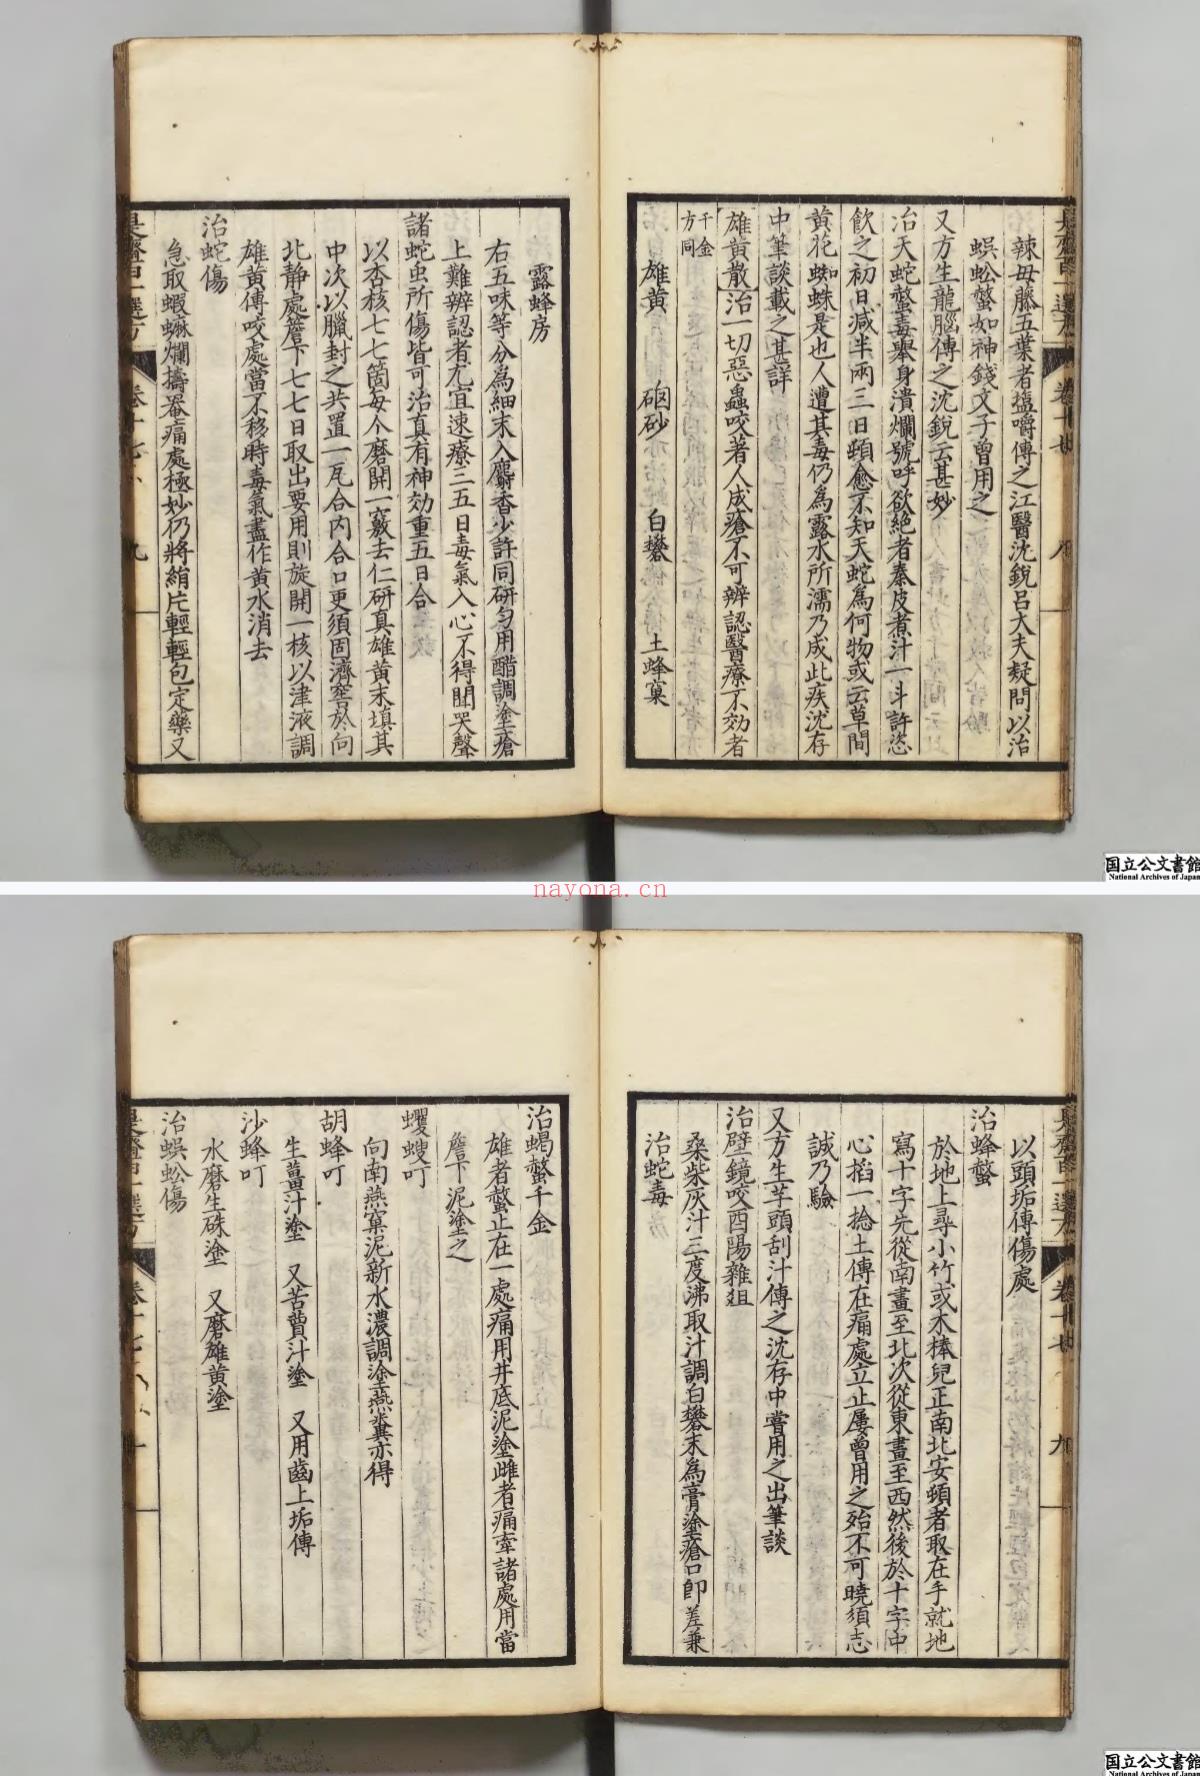 辣母藤五葉者塩嚼傅之江醫沈銳呂大夫疑問以治
蜈蚣螫如神錢文子曾用之
又方生龍腦傅之沈銳云甚妙
治天蛇螫毒舉身潰爛號呼欲絕者秦皮煮汁一斗許恣
飲之初日減半兩三日頓愈不知天蛇為何物或云草間
黃花蜘蛛是也人遭其毒仍為露水所濡乃成此疾沈存
中筆談載之甚詳
雄黃散治一切惡蟲咬著人成瘡不可辨認醫療不効者
千金
方同
雄黃 硇砂 白礬 土蜂窠
露蜂房
右五味等分為細末入麝香少許同研勻用醋調塗瘡
上難辨認者尤宜速療三五日毒氣入心不得聞哭聲
諸蛇虫所傷皆可治真有神効重五日合
以杏核七七箇每个磨開一竅去仁研真雄黃末填其
中次以臘封之共置一瓦合內合口更須固濟窖於向
北靜處簷下七七日取出要用則旋開一核以津液調
雄黃傅咬處當不移時毒氣盡作黃水消去
治蛇傷
急取蝦蟆爛擣罨痛處極妙仍將絹片輕輕包定藥又
是齋百一選方 卷十七 九
国立公文書館
National Archives of Japan
nayona.cn
以頭垢傅傷處
治蜂螫
於地上尋小竹或木棒兒正南北安頓者取在手就地
寫十字先從南畫至北次從東畫至西然後於十字中
心掐一捻土傅在痛處立止屢曾用之殆不可曉須志
誠乃驗
又方生芋頭刮汁傅之沈存中嘗用之出筆談
治壁鏡咬酉陽雜俎
桑柴灰汁三度沸取汁調白礬末為膏塗瘡口即差兼
治蛇毒
治蝎螫千金
雄者螫止在一處痛用井底泥塗雌者痛牽諸處用當
簷下泥塗之
蠼螋叮
向南燕窠泥新水濃調塗燕糞亦得
胡蜂叮
生薑汁塗 又苦蕒汁塗 又用齒上垢傅
沙蜂叮
水磨生硃塗 又磨雄黃塗
治蜈蚣傷
国立公文書館
National Archives of Japan